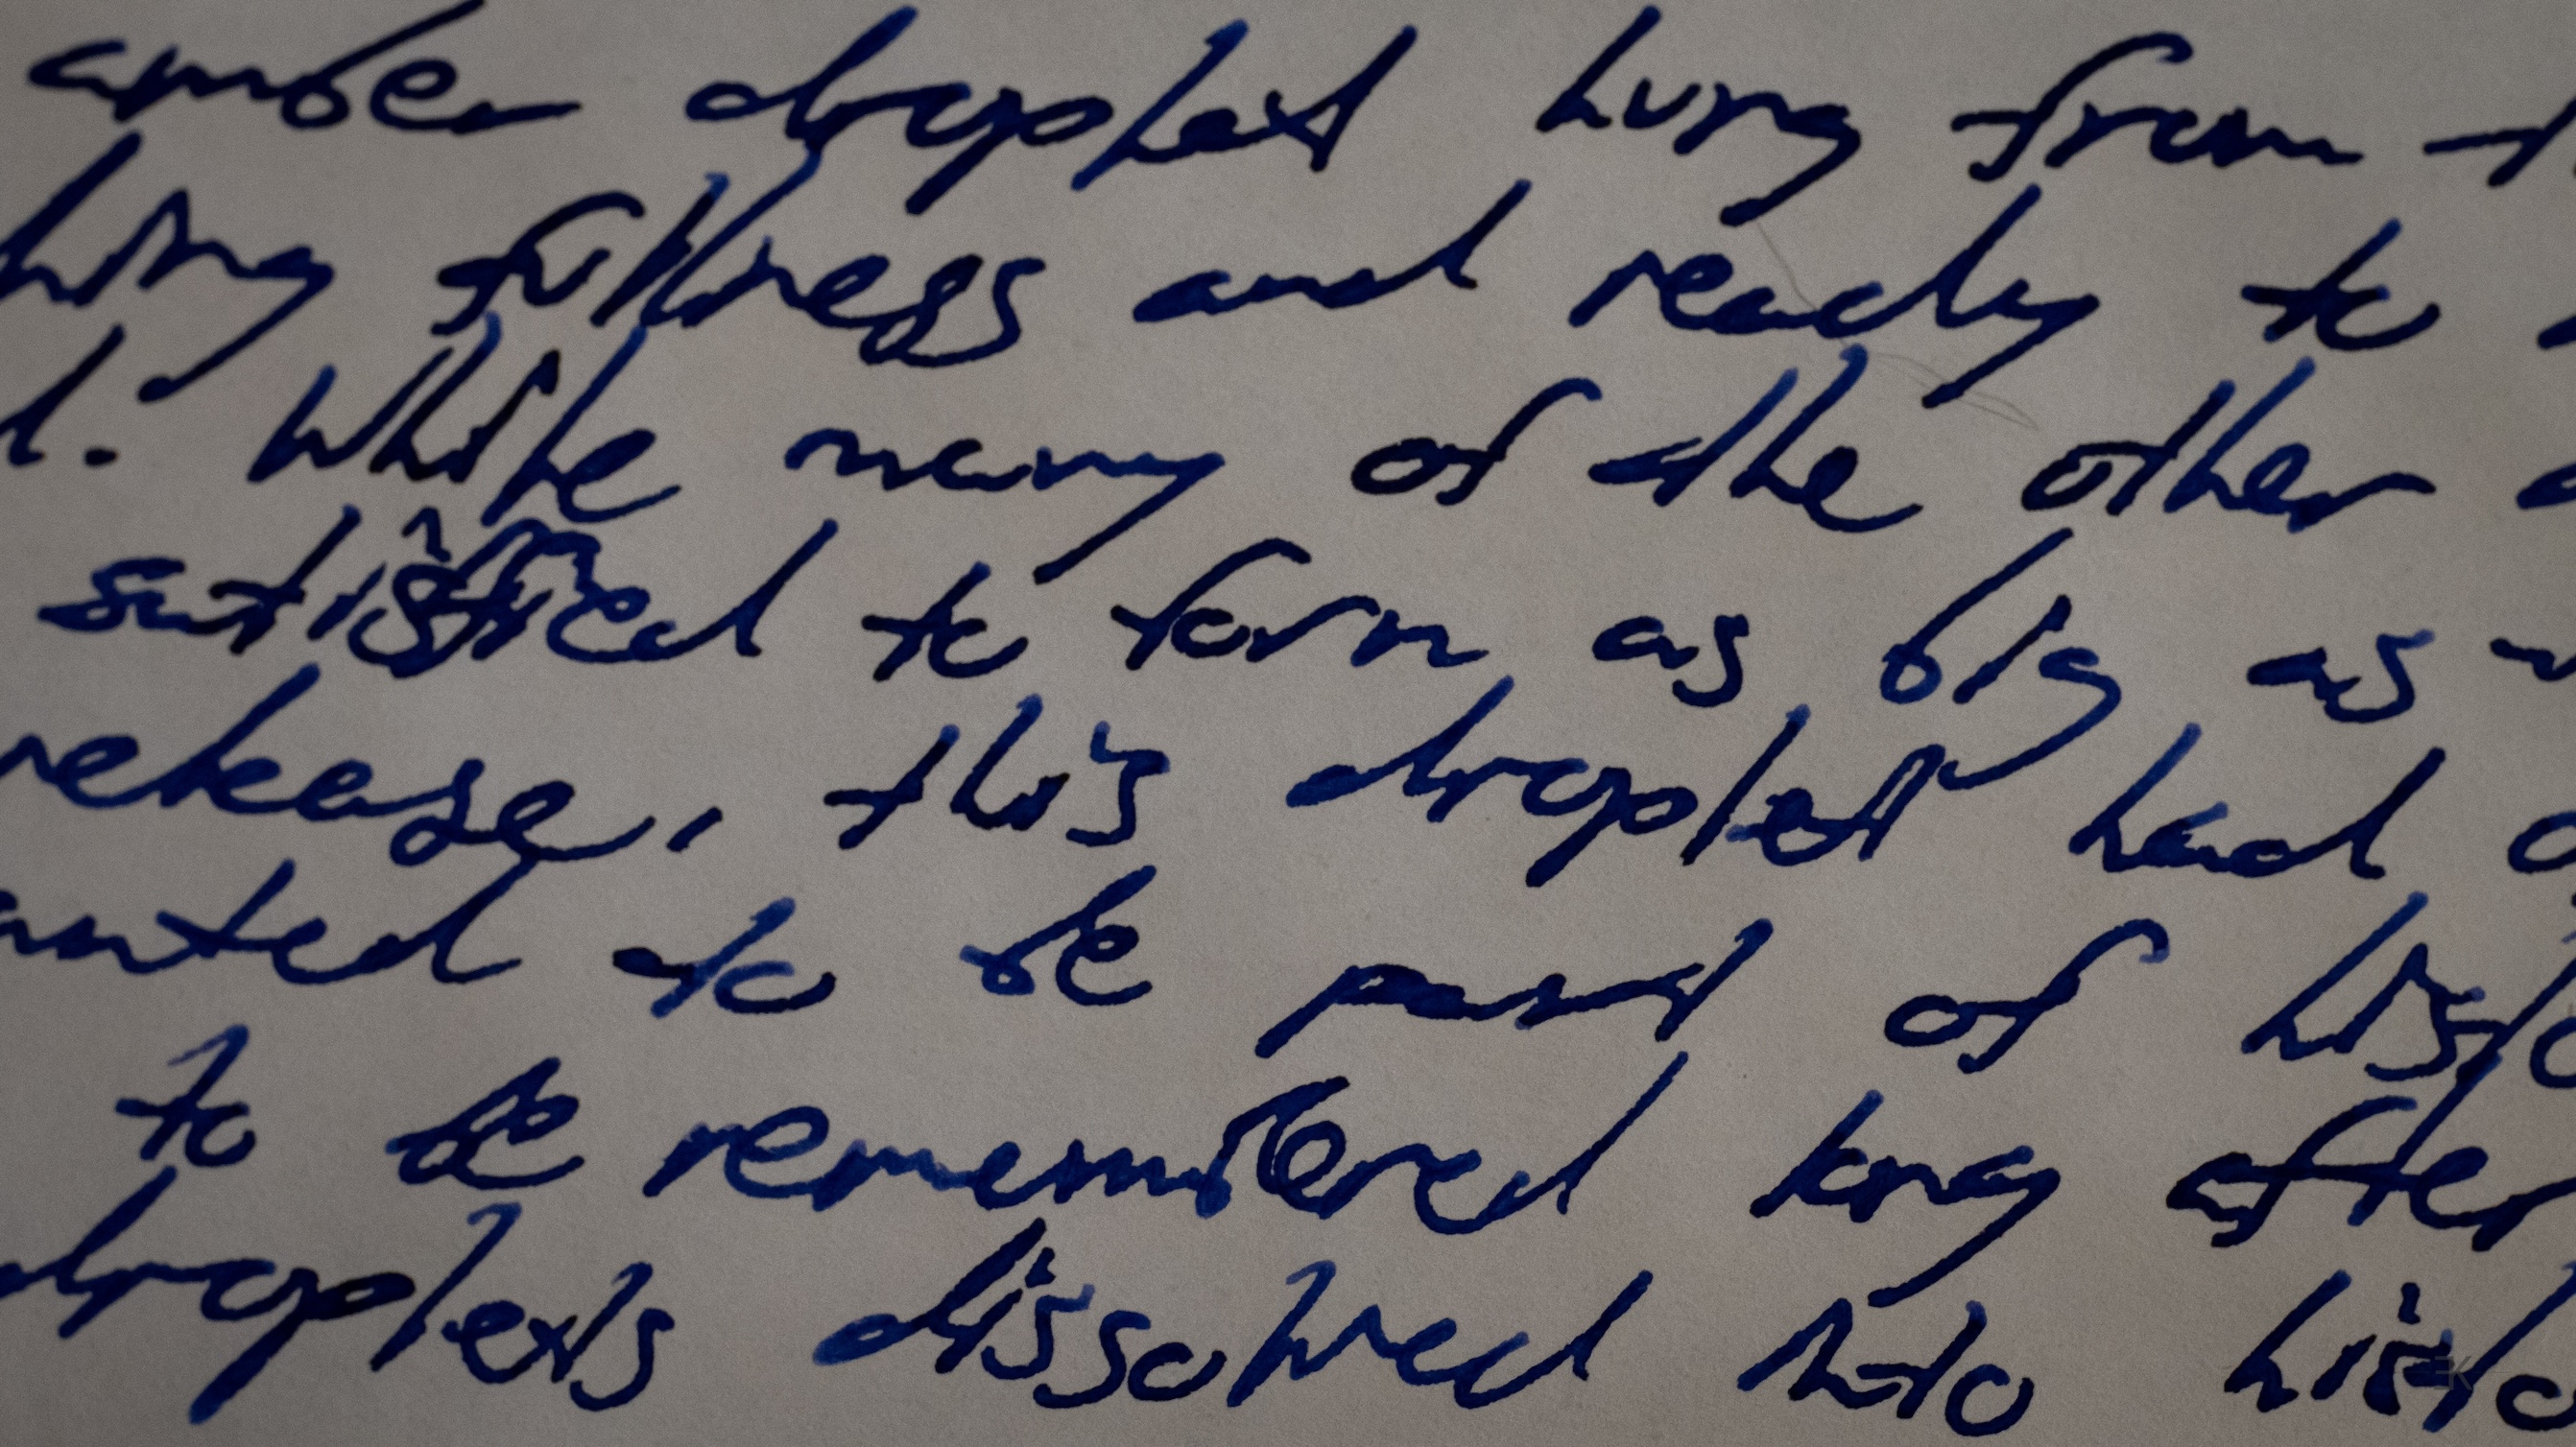 amber droplet hung from t
hing fullness and ready to
l. While many of the other
satisfied to form as big as
release, this droplet had
anted to be part of histo
to be remembered long after
droplets dissolved into histo